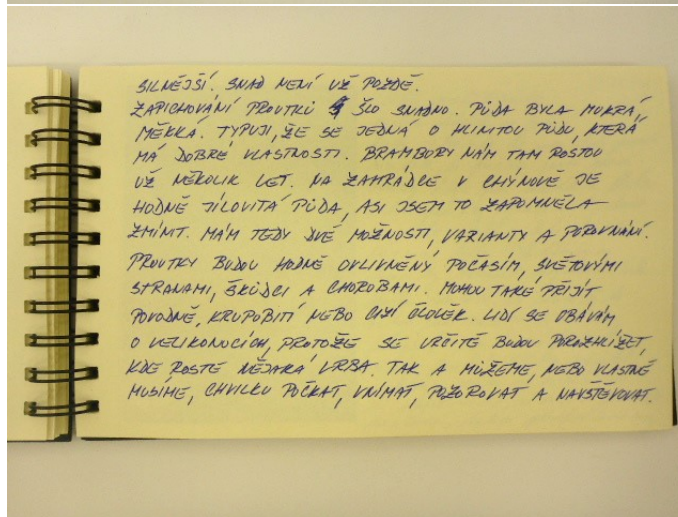 SILNĚJŠÍ. SNAD NENÍ UŽ POZDĚ.
ZAPICHOVÁNÍ PROUTKŮ ŠLO SNADNO. PŮDA BYLA MOKRÁ,
MĚKKÁ. TYPUJI, ŽE SE JEDNÁ O HLINITOU PŮDU, KTERÁ
MÁ DOBRÉ VLASTNOSTI. BRAMBORY NÁM TAM ROSTOU
UŽ NĚKOLIK LET. NA ZAHRÁDCE V CHÝNOVĚ JE
HODNĚ JÍLOVITÁ PŮDA, ASI JSEM TO ZAPOMNĚLA
ZMÍNIT. MÁM TEDY DVĚ MOŽNOSTI, VARIANTY A POROVNÁNÍ.
PROUTKY BUDOU HODNĚ OVLIVNĚNÝ POČASÍM, SVĚTOVÝMI
STRANAMI, ŠKŮDCI A CHOROBAMI. MOHOU TAKÉ PŘIJÍT
POVODNĚ, KRUPOBITÍ NEBO CIZÍ ČLOVĚK. LIDÍ SE OBÁVÁM
O VELIKONOCÍCH, PROTOŽE SE URČITĚ BUDOU POROZHLÍŽET,
KDE ROSTE NĚJAKÁ VRBA. TAK A MŮŽEME, NEBO VLASTNĚ
MUSÍME, CHVILKU POČKAT, VNÍMAT, POZOROVAT A NAVŠTĚVOVAT.